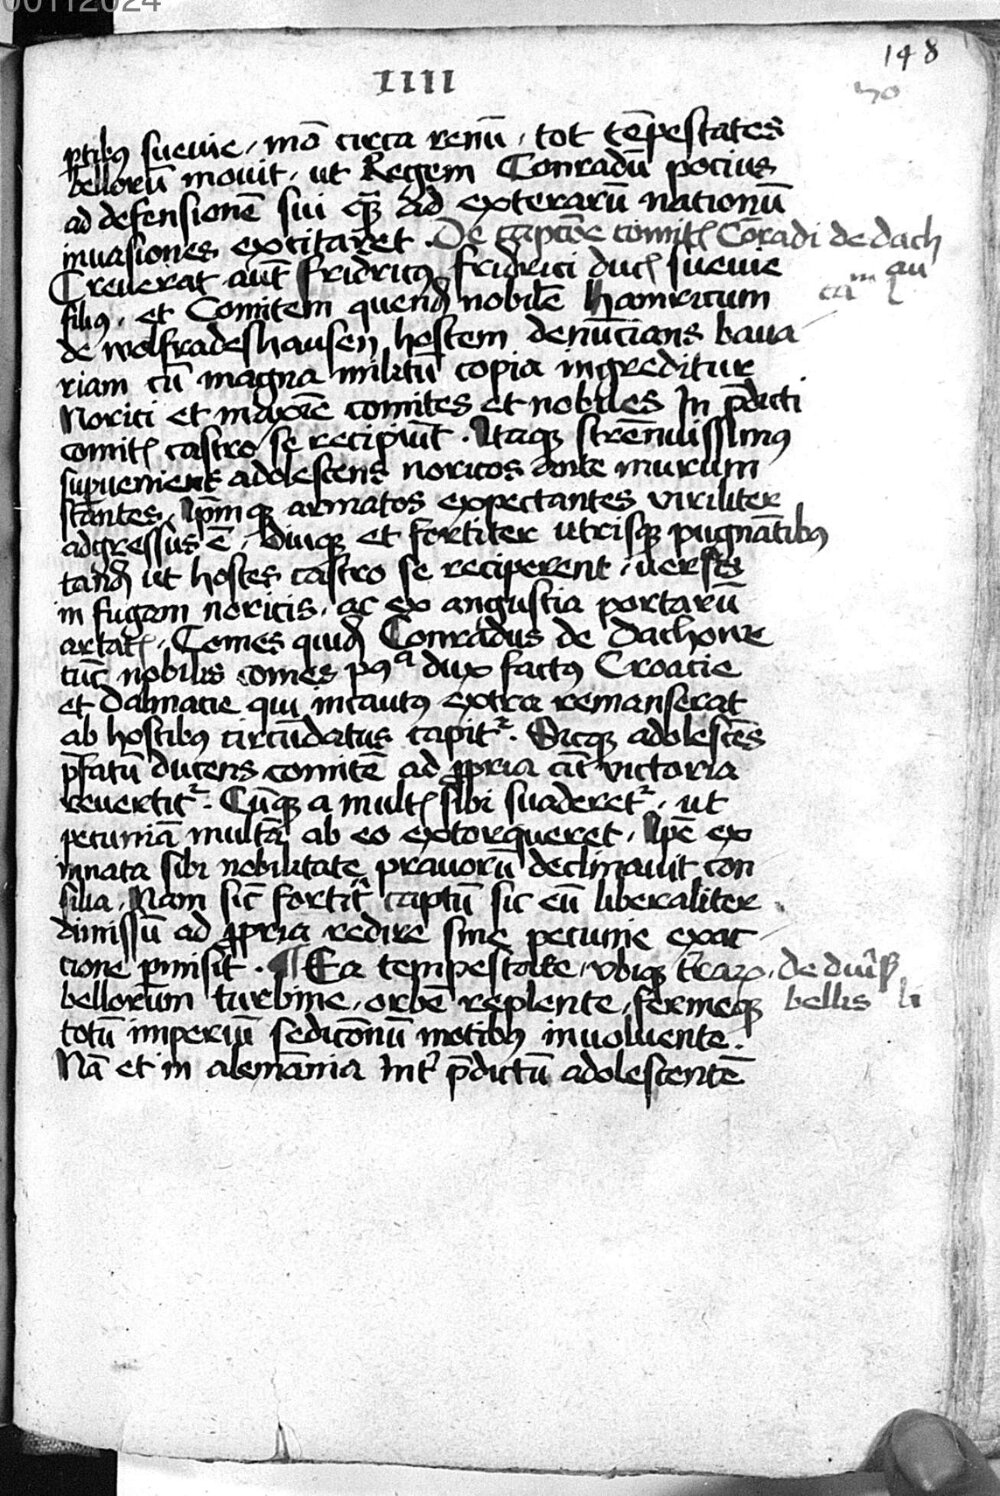 00112024
148
IIII
ꝑtibꝰ sueuie, mo᷒ circa renū, tot tēpestates
bellorū mouit, ut Regem Conradū pocius
ad defensionē sui qᷓꝫ ad exterarū nationū
inuasiones excitaret. De capcōe comitꝭ Cōradi de dach
Creuerat aut̄ fridricꝰ friderici ducꝭ sueuie
filiꝰ, et Comitem quendā nobilē hainricum
de wolfradeshausen hostem denūcians baua
riam cū magna militū copia ingreditur
Norici et maxīe comites et nobiles In p̄dicti
comitꝭ castro se recipiūt. Itaqꝫ strēnuissimꝰ
supueniens adolescens noricos ante murum
stantes, Ip̄mqꝫ armatos expectantes viriliter
adgressus ē, Diuqꝫ et fortiter utrisqꝫ pugnātibꝰ
tandē ut hostes castro se reciperent, uersis
in fugam noricis, ac ex angustia portarū
artatꝭ, Comes quidā Conradus de dachowe
tūc nobilis comes pꝰᵃ dux factꝰ Croacie
et dalmacie qui incautꝰ extra remanserat
ab hostibꝰ circūdatus capitᷣ. Sicqꝫ adolescēs
p̄fatū ducens comitē ad ꝓpria cū victoria
reuertitᷣ. Cūqꝫ a multꝭ sibi suaderetᷣ, ut
pecuniā multā ab eo extorqueret, Ip̄e ex
innata sibi nobilitate prauorū declinauit con
silia, Nam sic̄ fortit̓ captū sic eū liberaliter
dimissū ad ꝓpria redire sine pecunie exac
cione ꝑmisit. ¶ Ea tempestate, ubiqꝫ t̄raꝝ, de diu̓sꝭ
bellorum turbine, orbē replente, fermeqꝫ bellis li
totū imperiū sedicōnū motibꝰ inuoluente.
Nā et in alemānia Int̓ p̄dictū adolescentē